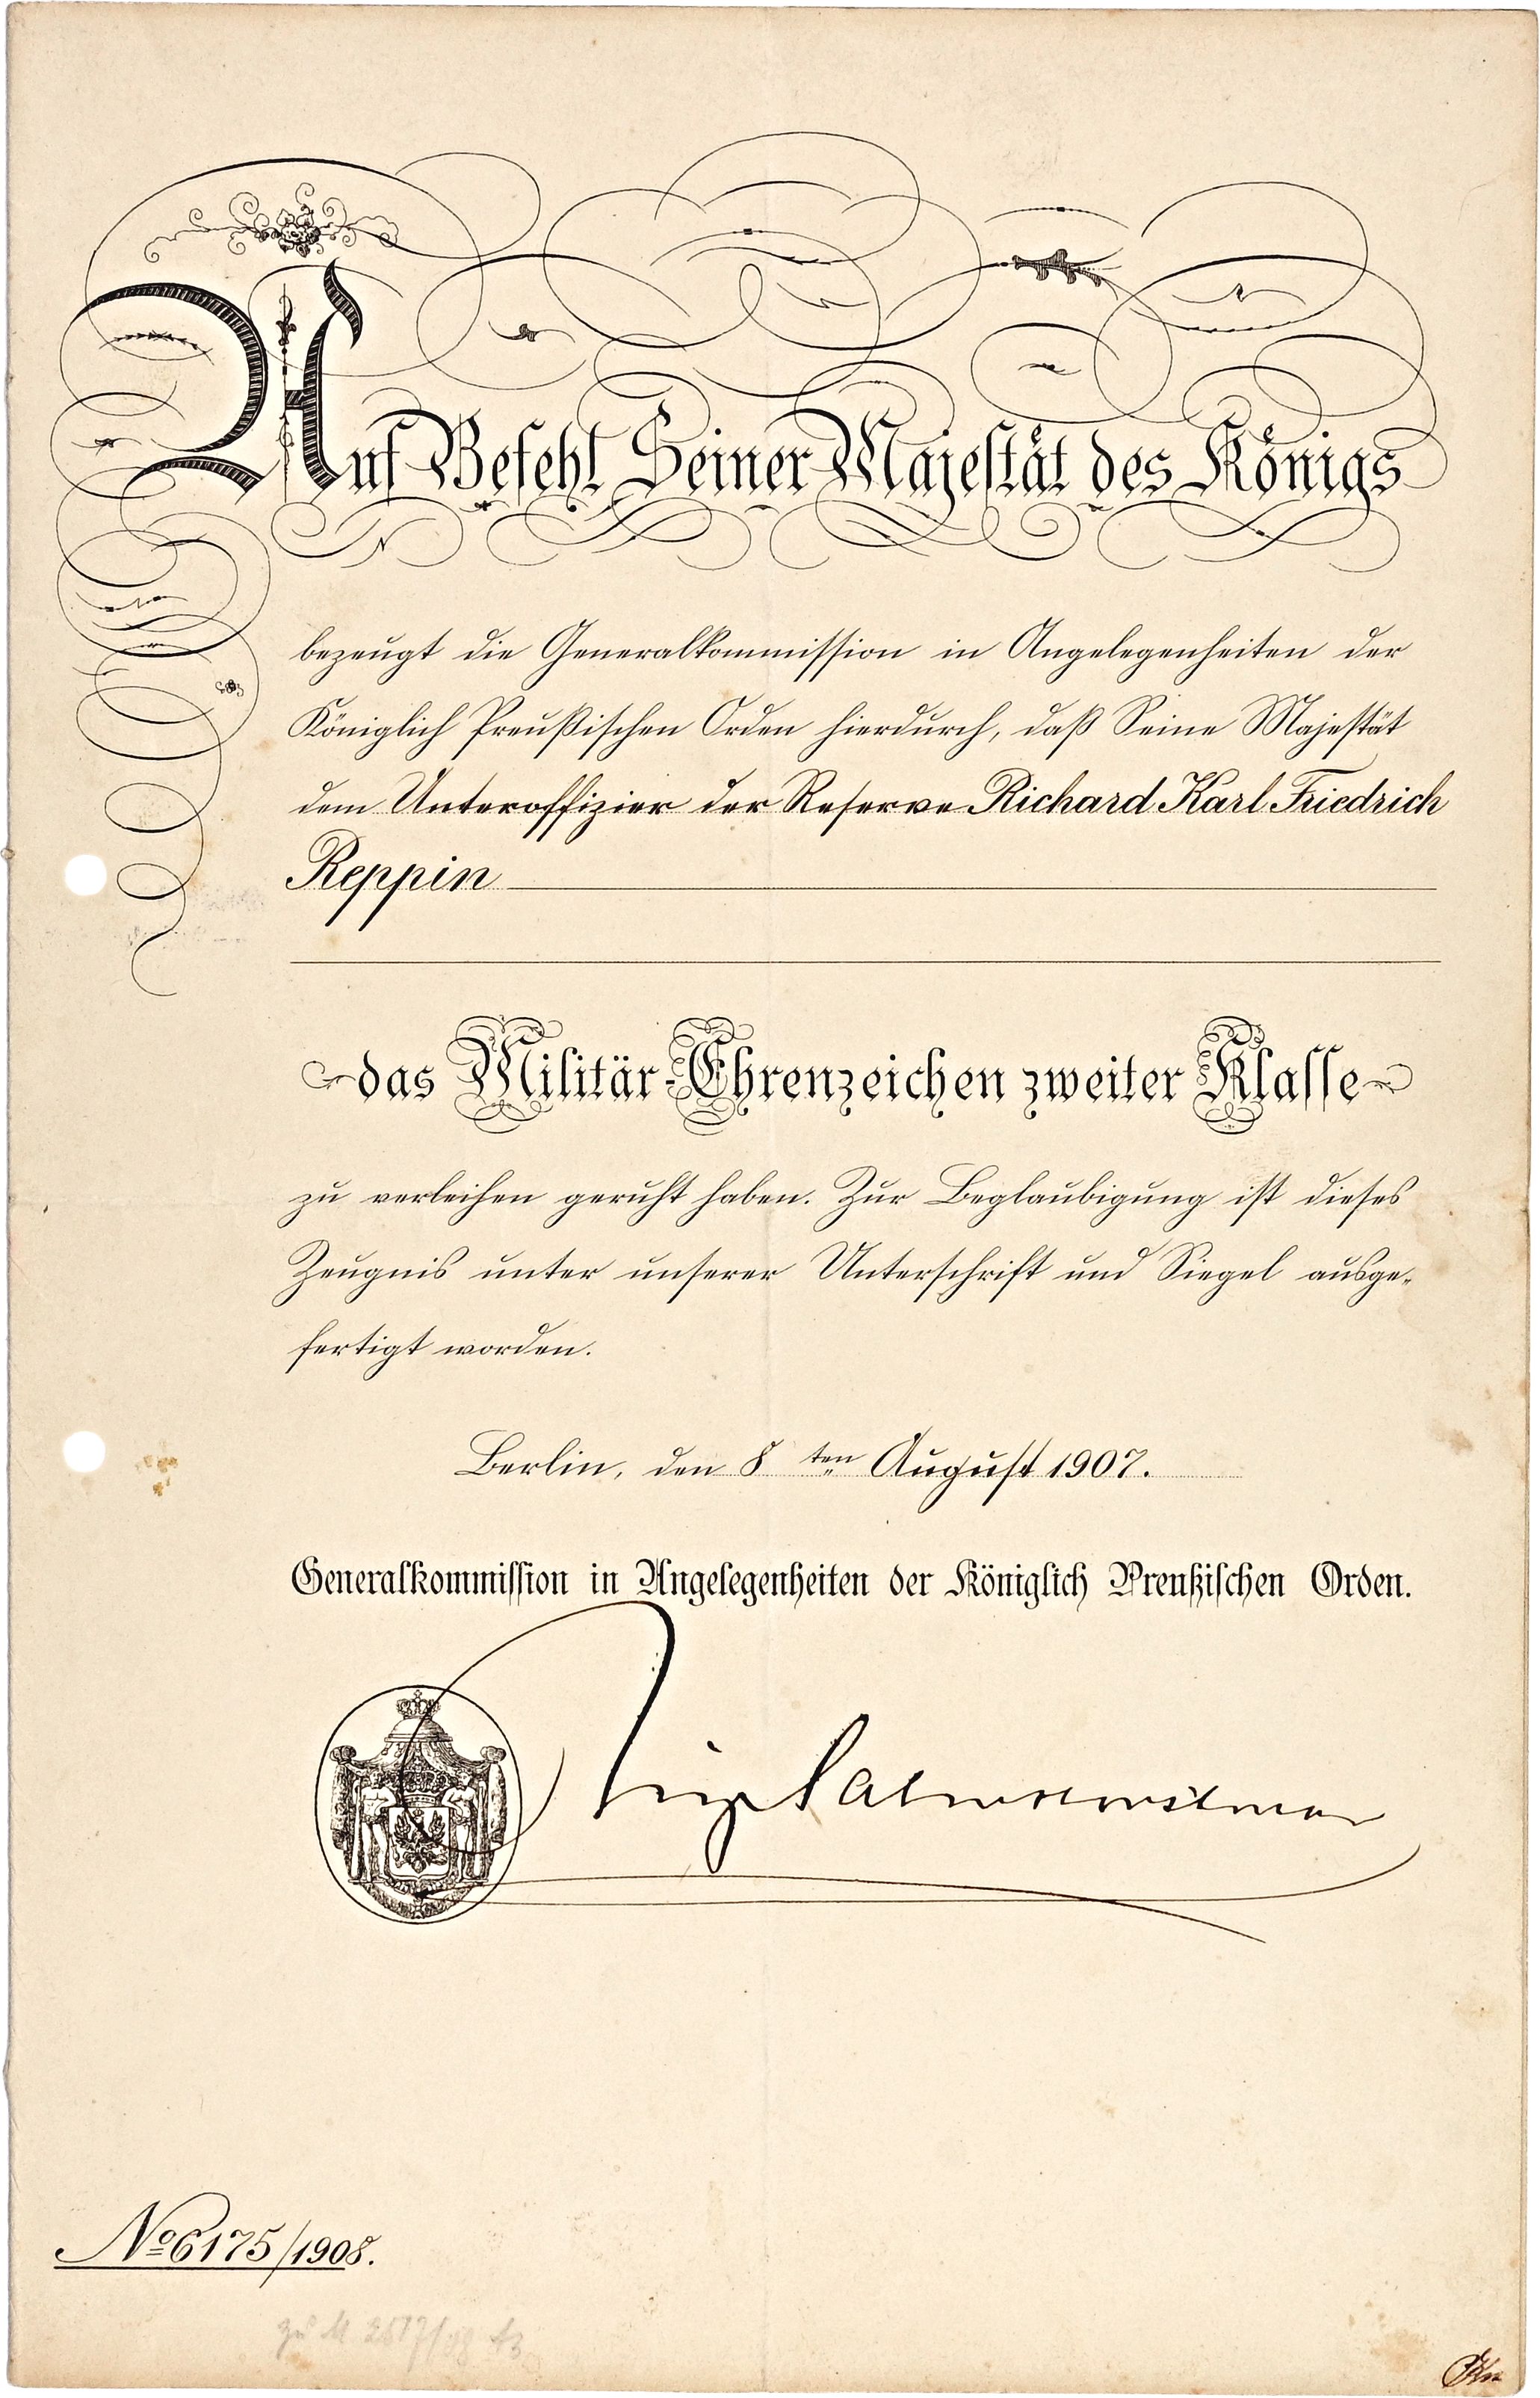 Auf Befehl Seiner Majestät des Königs
bezeugt die Generalkommission in Angelegenheiten der
Königlich Preußischen Orden hierdurch, daß Seine Majestät
dem Unteroffizier der Reserve Richard Karl Friedrich
Reppin
das Militär-Ehrenzeichen zweiter Klasse
zu verleihen geruht haben. Zur Beglaubigung ist dieses
Zeugnis unter unserer Unterschrift und Siegel ausge-
fertigt worden.
Berlin, den 8 ten August 1907.
Generalkommission in Angelegenheiten der Königlich Preußischen Orden.
No 6175/1908.